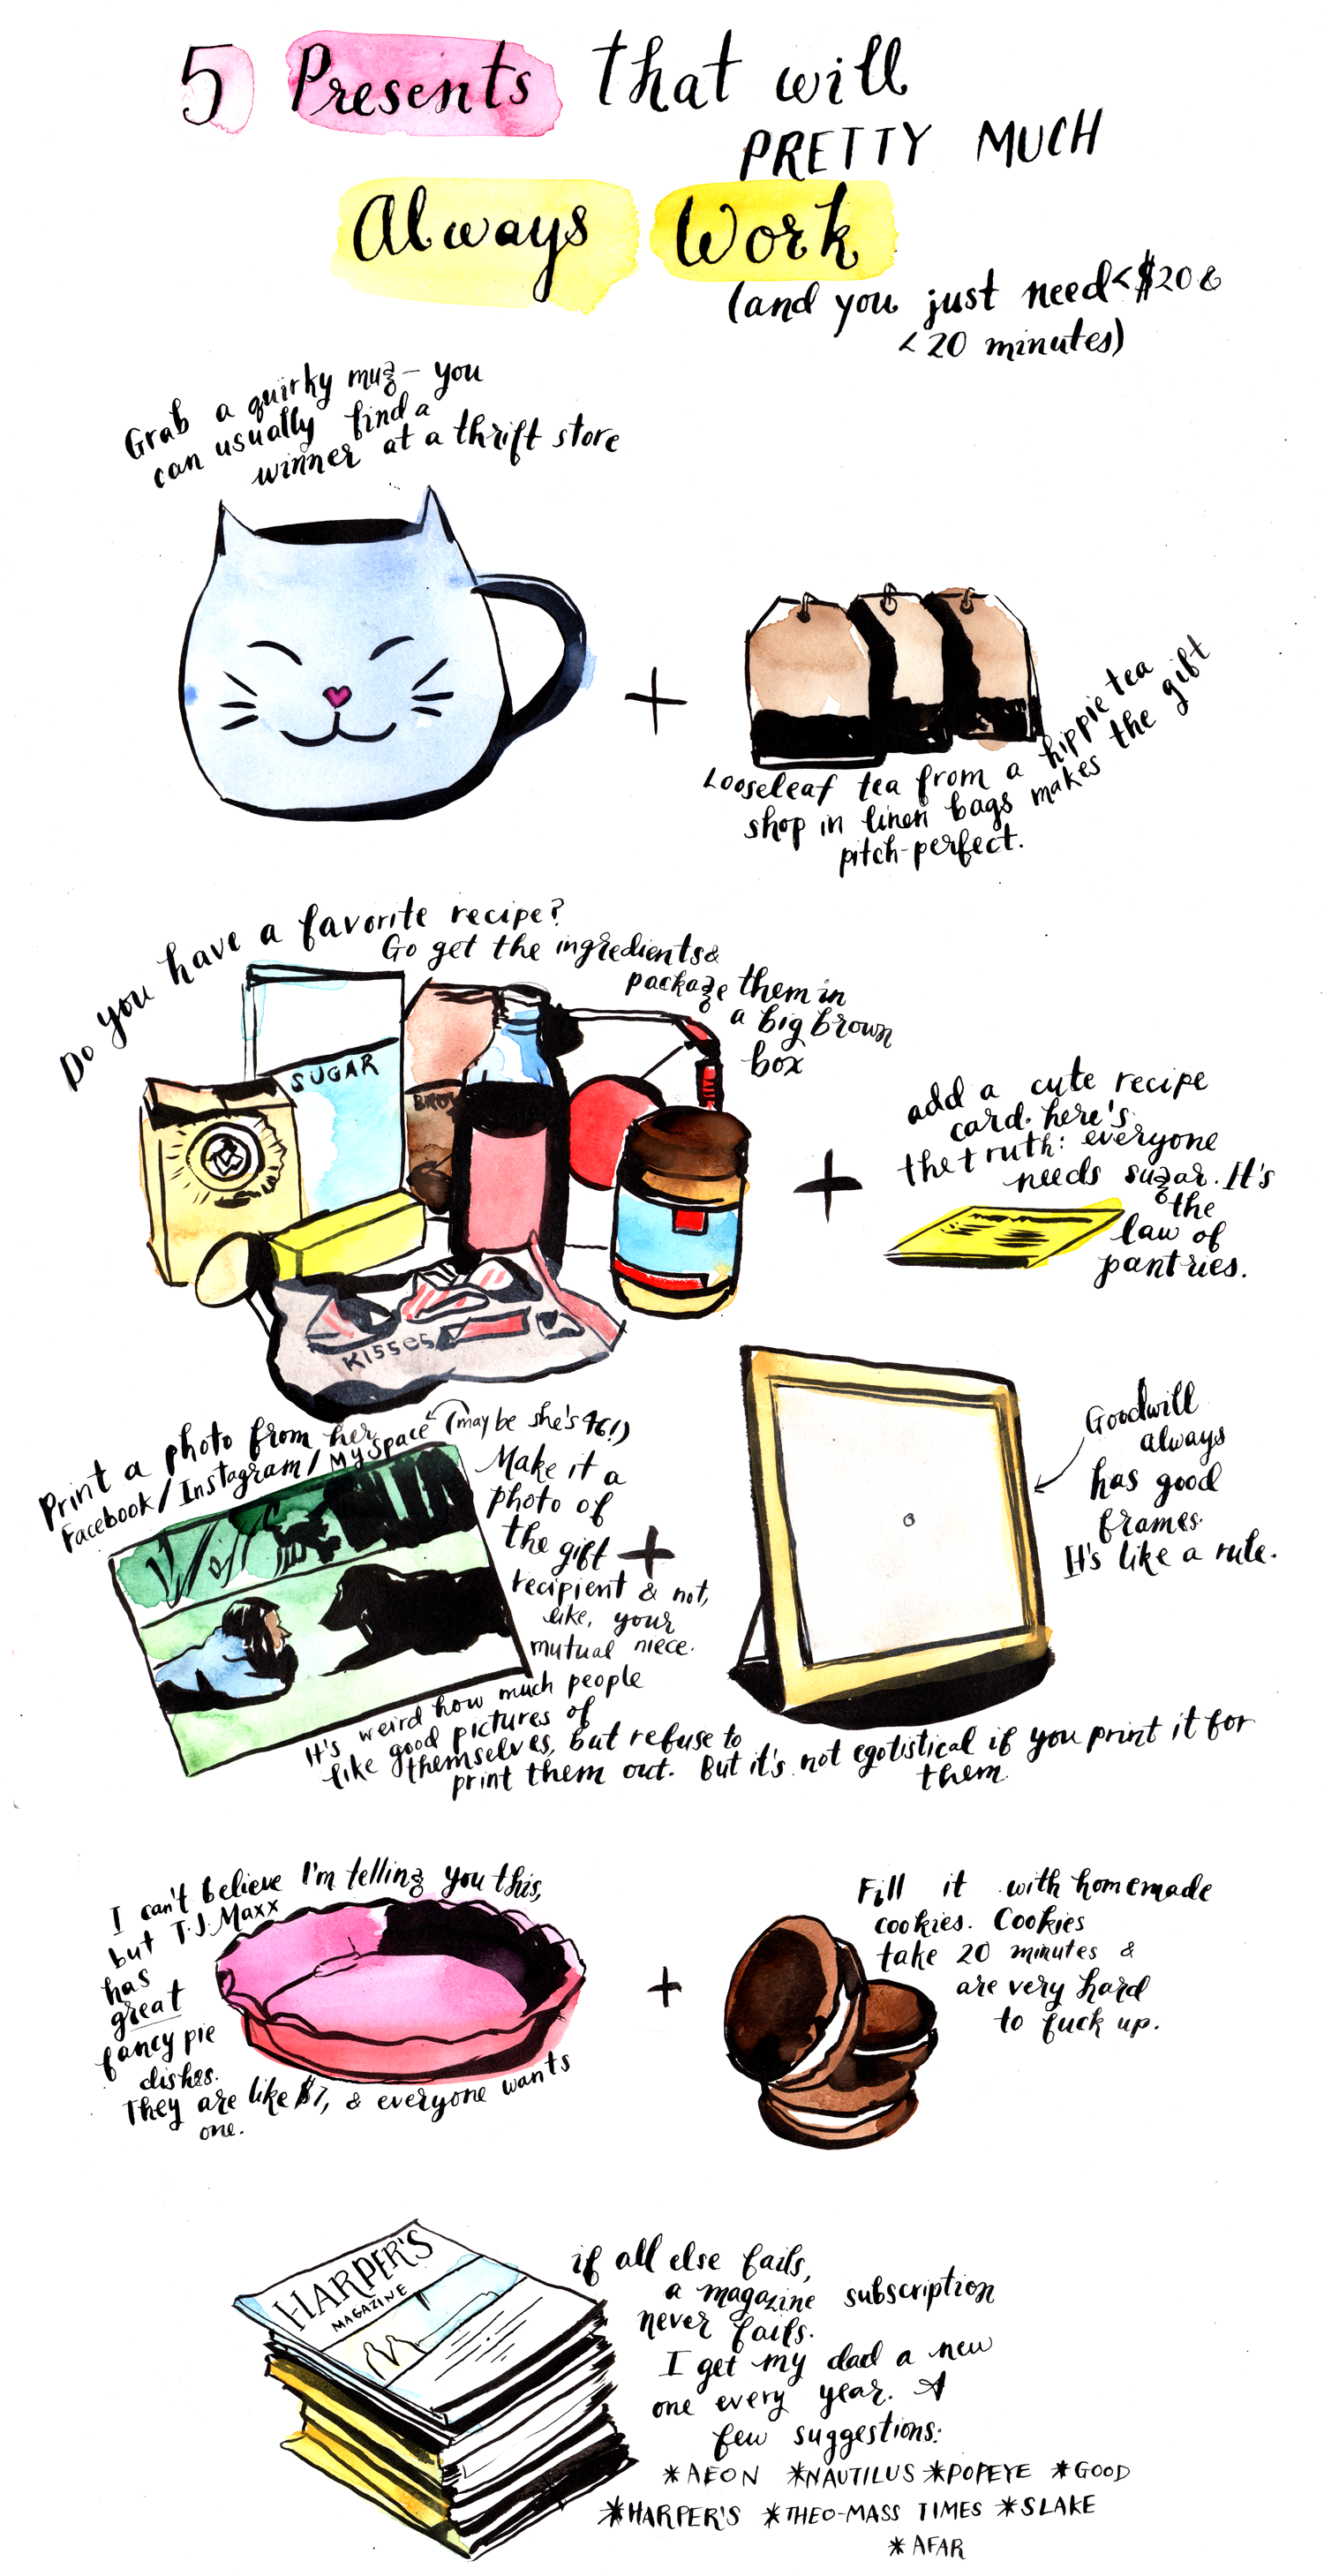 5 Presents that will
PRETTY MUCH
Always Work
(and you just need <$20 &
<20 minutes)
Grab a quirky mug — you
can usually find a
winner at a thrift store
Looseleaf tea from a hippie tea
shop in linen bags makes the gift
pitch-perfect.
Do you have a favorite recipe?
Go get the ingredients &
package them in
a big brown
box
SUGAR
BROW
KISSES
add a cute recipe
card. here's
the truth: everyone
needs sugar. It's
the
law of
pantries.
Print a photo from her
Facebook / Instagram / MySpace
(maybe she's 46!)
Make it a
photo of
the gift
recipient & not,
like, your
mutual niece.
It's weird how much people
like good pictures of
themselves, but refuse to
print them out. But it's not egotistical if you print it for
them.
Goodwill
always
has good
frames.
It's like a rule.
I can't believe I'm telling you this,
but T.J. Maxx
has
great
fancy pie
dishes.
They are like $7, & everyone wants
one.
Fill it with homemade
cookies. Cookies
take 20 minutes &
are very hard
to fuck up.
HARPER'S
MAGAZINE
if all else fails,
a magazine subscription
never fails.
I get my dad a new
one every year. A
few suggestions:
*AEON *NAUTILUS *POPEYE *GOOD
*HARPER'S *THEO-MASS TIMES *SLAKE
*AFAR